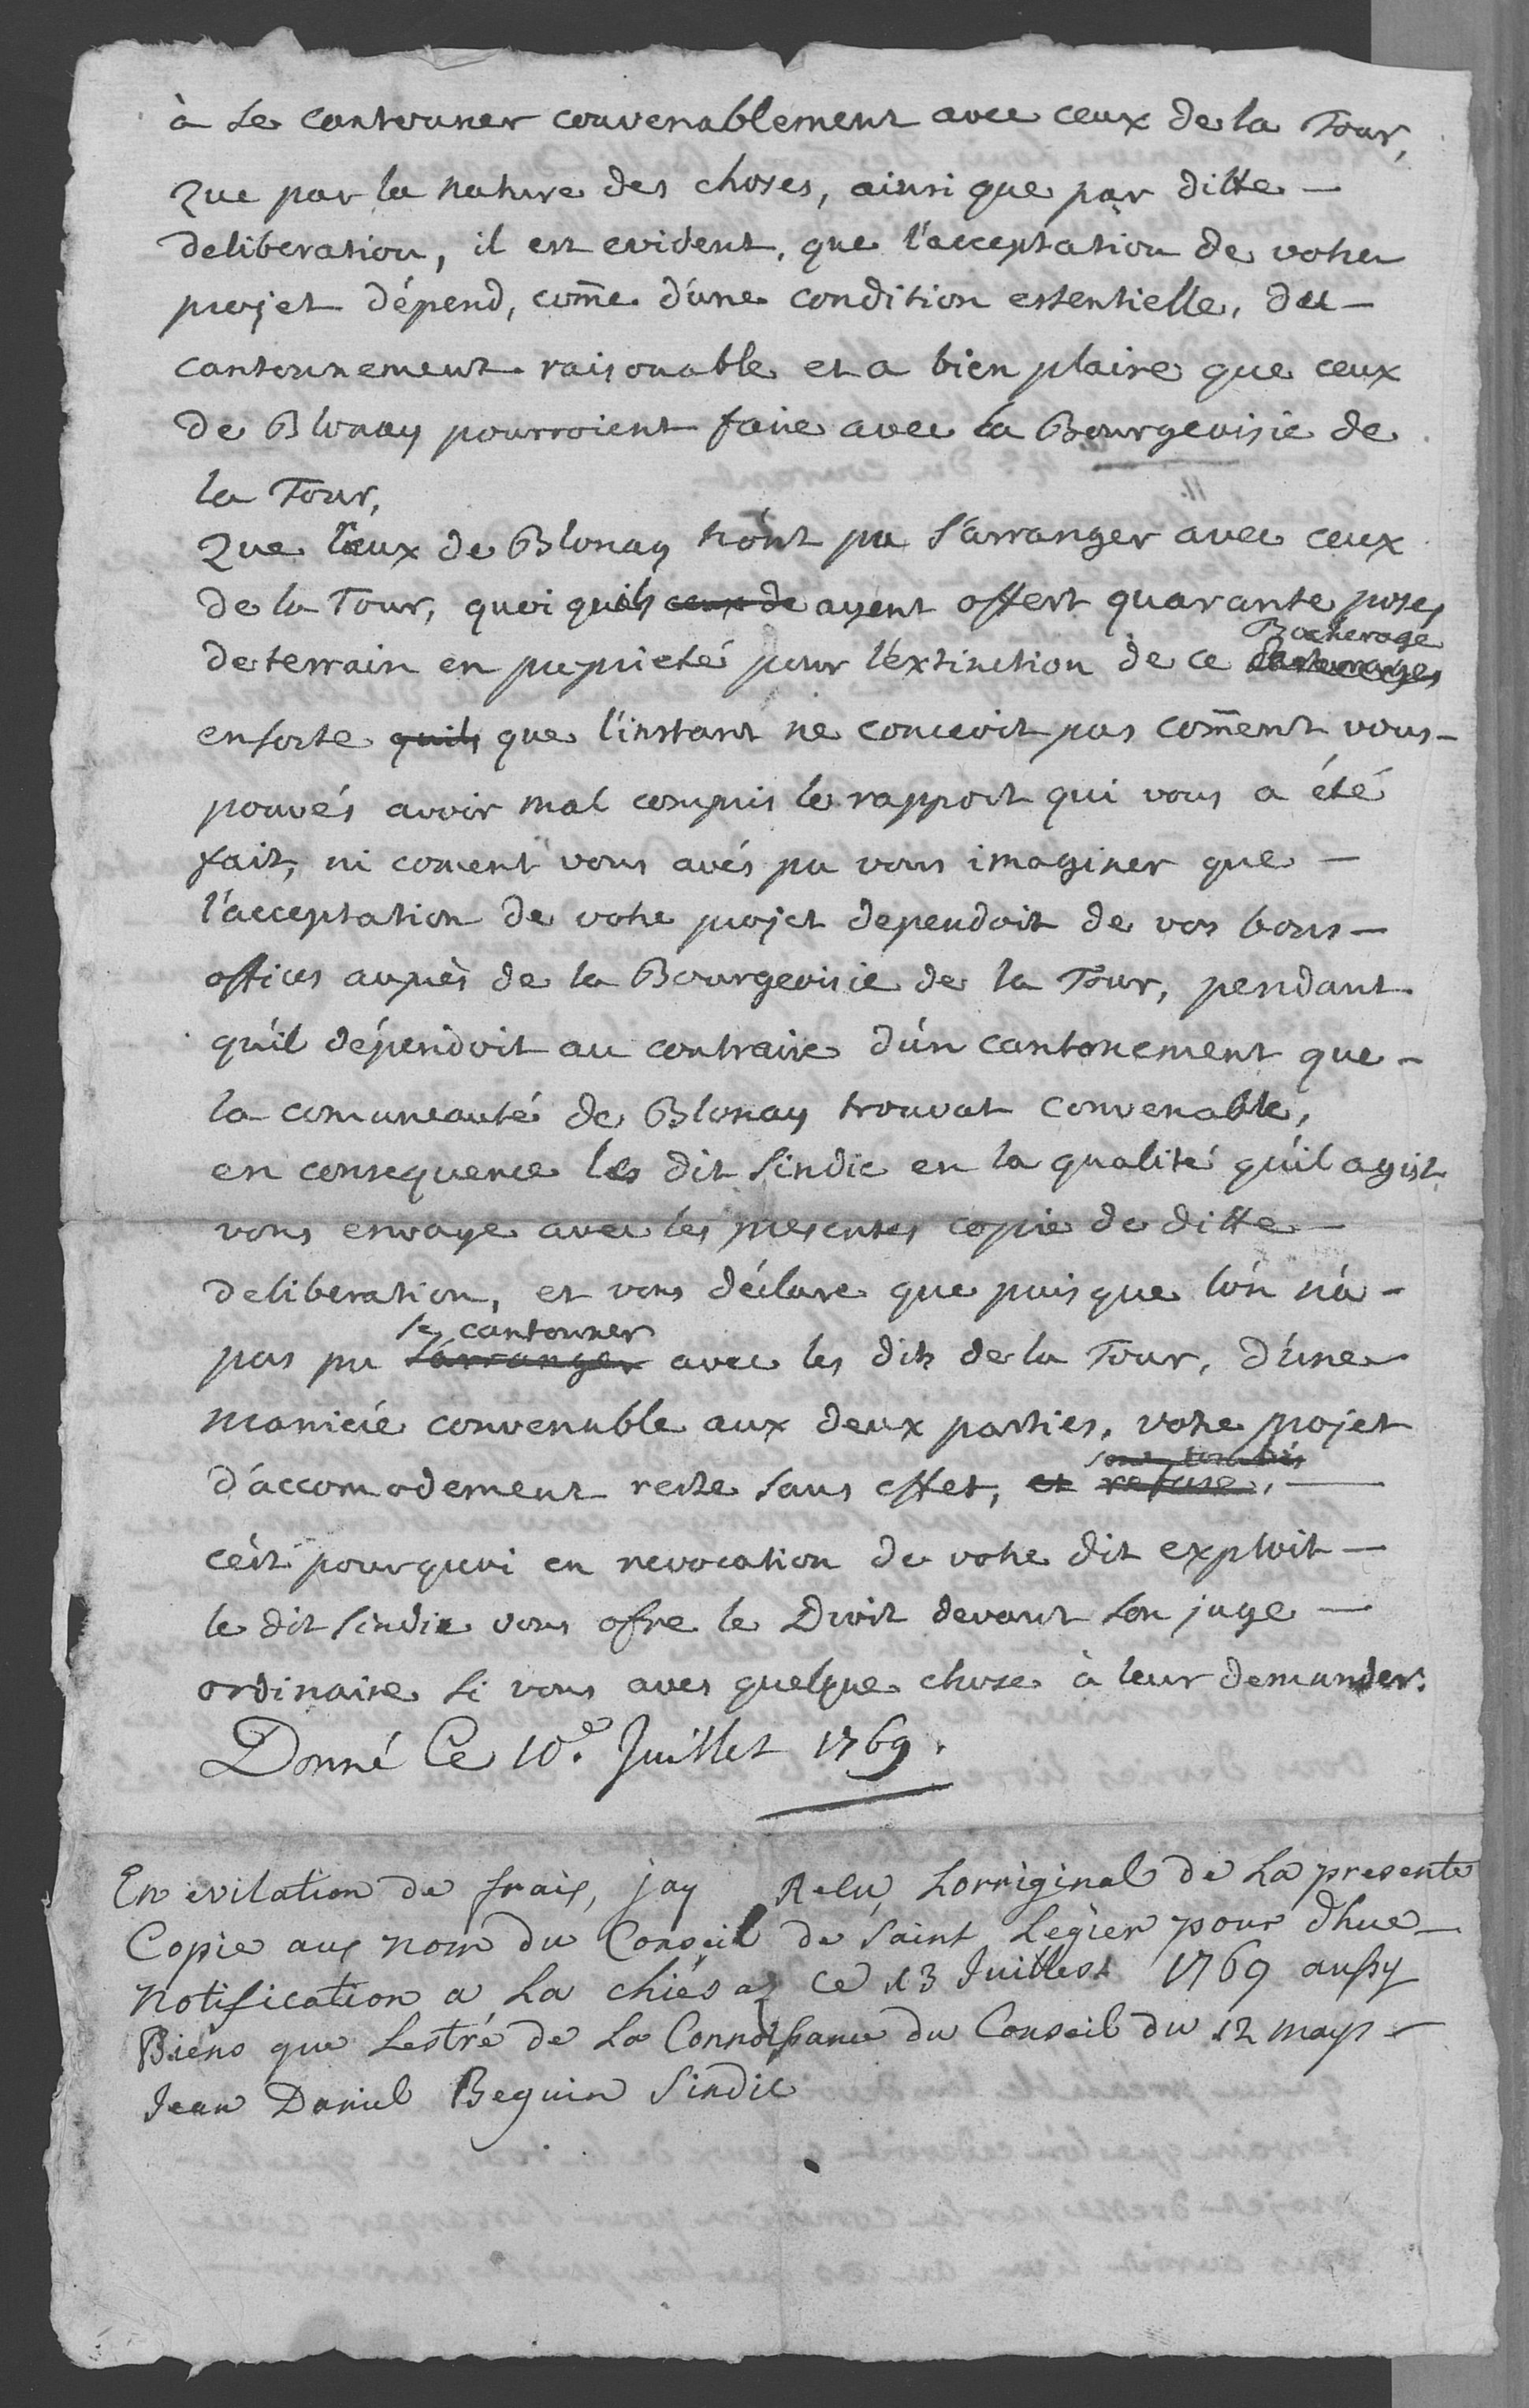 à se cantonner convenablement avec ceux de la Tour,
Que par la nature des choses, ainsi que par ditte –
deliberation, il est evident, que l'acceptation de votre
projet dépend, come d'une condition essentielle, du –
cantonnement raisonable et a bien plaire que ceux
de Blonay pourroient faire avec la Bourgeoisie de
la Tour,
Que Ceux de Blonay n'ont pu s'arranger avec ceux
de la Tour, quoi quils ceux de ayent offert quarante poses
Bocherage
de terrain en proprieté pour l'extinction de ce
ensorte quils que l'instant ne concoit pas coment vous –
pouvés avoir mal compris le rapport qui vous a été
fait, ni coment vous avés pu vous imaginer que –
l'acceptation de votre projet dependoit de vos bons –
offices auprès de la Bourgeoisie de la Tour, pendant
qu'il dépendoit au contraire d'un cantonement que –
la comuneauté de Blonay trouvat convenable,
en consequence les dit Sindic en la qualité qu'il agist
vous envoye avec les presentes copie de ditte –
deliberation, et vous déclare que puis que l'on n'a –
se cantonner
pas pu s'arranger avec les dits de la Tour, d'une
maniere convenable aux deux parties, votre projet
d'accomodement reste sans effet, et refuse, –
c'est pourquoi en revocation de votre dit exploit –
le dit Sindic vous ofre le Droit devant son juge –
ordinaire si vous aves quelque chose à leur demander.
Donné Ce 10.e Juillet 1769.
En evitation de frais, jay Relu Lorriginal de La presente
Copie aux nom du Conseil de Saint Legier pour d'hue –
notification a La chiésaz ce 13 Juillest 1769 aussy
Biens que Lestré de La Connoissance du Conseil du 12 mays –
Jean Daniel Beguin Sindic